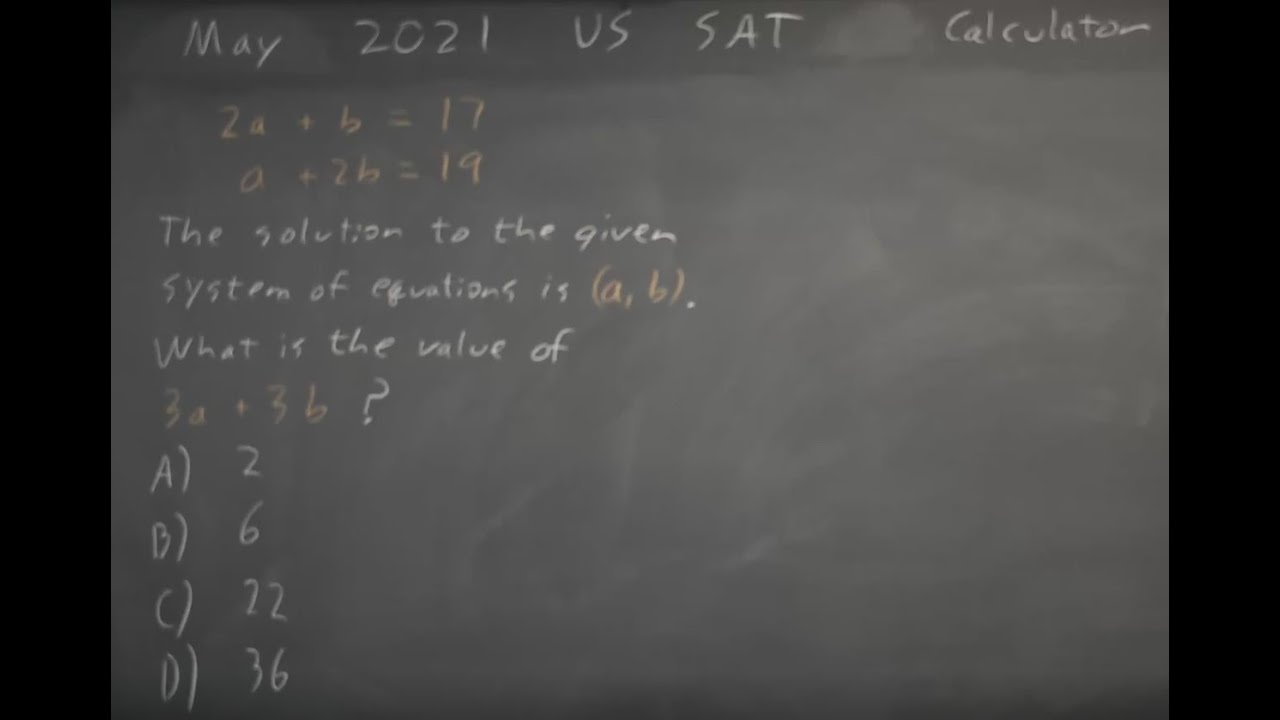 May 2021 US SAT Calculator
2a + b = 17
a + 2b = 19
The solution to the given
system of equations is (a, b).
What is the value of
3a + 3b ?
A) 2
B) 6
C) 22
D) 36